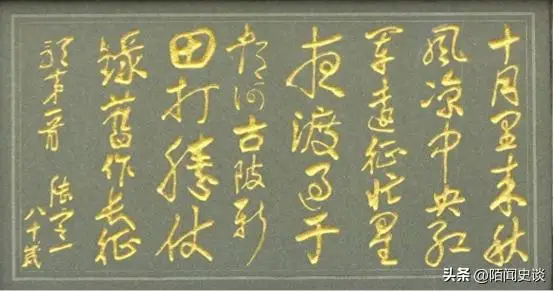 十月里来秋
风凉中央红
军远征忙星
夜渡过于
都河古陂新
田打勝仗
錄舊作长征
歌第一首
陆定一
八十歲
头条 @陌闻史谈